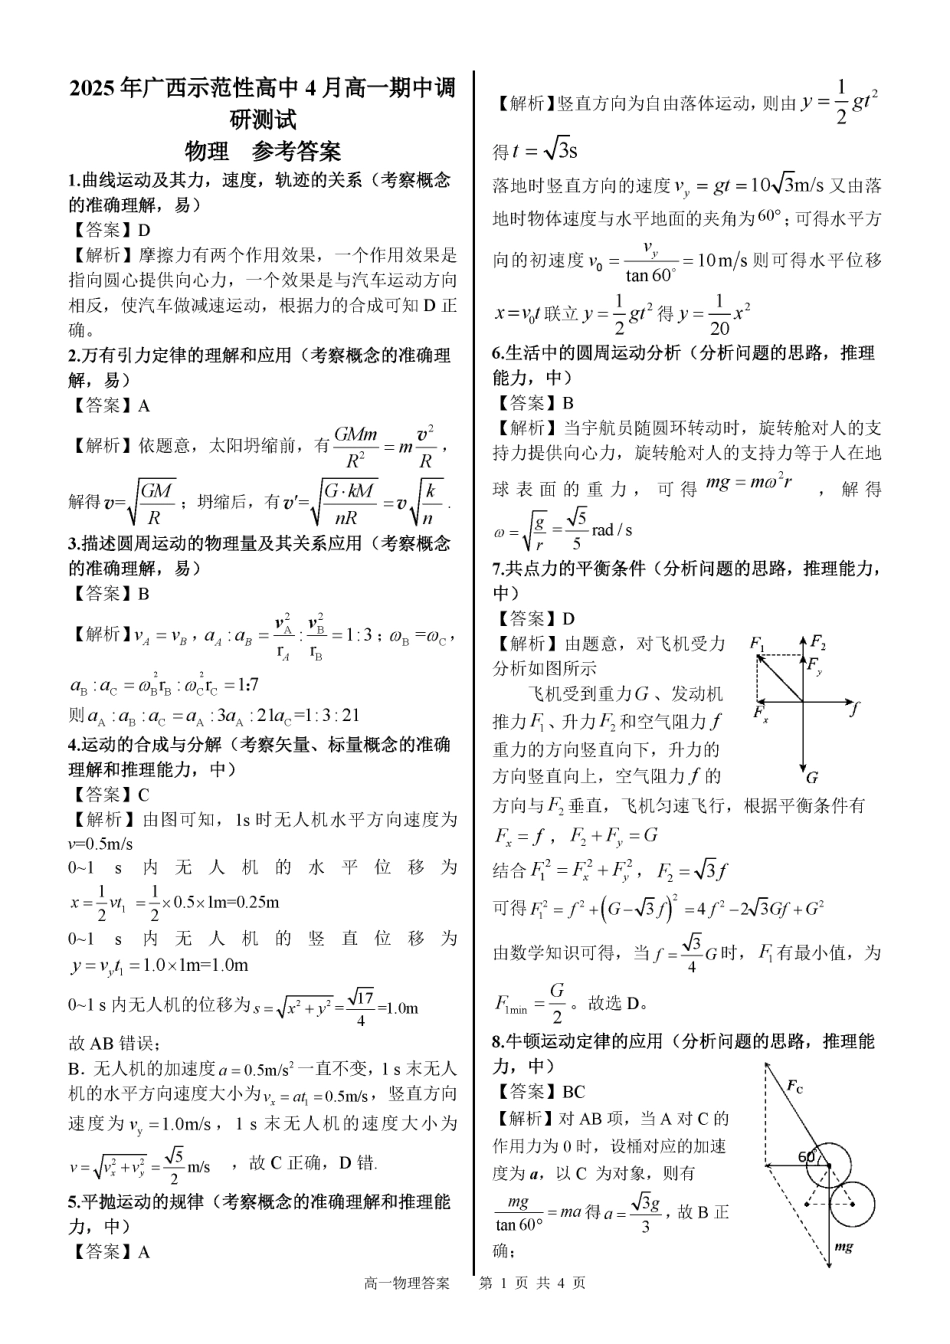 2025 年广西示范性高中 4 月高一期中调
研测试
物理 参考答案
1.曲线运动及其力，速度，轨迹的关系（考察概念
的准确理解，易）
【答案】D
【解析】摩擦力有两个作用效果，一个作用效果是
指向圆心提供向心力，一个效果是与汽车运动方向
相反，使汽车做减速运动，根据力的合成可知 D 正
确。
2.万有引力定律的理解和应用（考察概念的准确理
解，易）
【答案】A
【解析】依题意，太阳坍缩前，有 GMm/R² = m v²/R，
解得 v=√(GM/R)；坍缩后，有 v′=√(G·kM/nR) = v√(k/n).
3.描述圆周运动的物理量及其关系应用（考察概念
的准确理解，易）
【答案】B
【解析】v_A = v_B，a_A : a_B = v_A²/r_A : v_B²/r_B = 1:3；ω_B =ω_C，
a_B : a_C = ω_B²r_B : ω_C²r_C = 1:7
则 a_A : a_B : a_C = a_A : 3a_A : 21a_C=1: 3 : 21
4.运动的合成与分解（考察矢量、标量概念的准确
理解和推理能力，中）
【答案】C
【解析】由图可知，1s 时无人机水平方向速度为
v=0.5m/s
0~1 s 内无人机的水平位移为
x = 1/2 vt₁ = 1/2 ×0.5×1m=0.25m
0~1 s 内无人机的竖直位移为
y = v_y t₁ = 1.0×1m=1.0m
0~1 s 内无人机的位移为 s = √(x² + y²) = √17/4 =1.0m
故 AB 错误；
B．无人机的加速度 a = 0.5m/s² 一直不变，1 s 末无人
机的水平方向速度大小为 v_x = at₁ = 0.5m/s，竖直方向
速度为 v_y =1.0m/s，1 s 末无人机的速度大小为
v = √(v_x² + v_y²) = √5/2 m/s ，故 C 正确，D 错.
5.平抛运动的规律（考察概念的准确理解和推理能
力，中）
【答案】A
【解析】竖直方向为自由落体运动，则由 y = 1/2 gt²
得 t = √3s
落地时竖直方向的速度 v_y = gt =10√3m/s 又由落
地时物体速度与水平地面的夹角为 60°；可得水平方
向的初速度 v₀ = v_y/tan 60° =10m/s 则可得水平位移
x=v₀t 联立 y = 1/2 gt² 得 y = 1/20 x²
6.生活中的圆周运动分析（分析问题的思路，推理
能力，中）
【答案】B
【解析】当宇航员随圆环转动时，旋转舱对人的支
持力提供向心力，旋转舱对人的支持力等于人在地
球表面的重力，可得 mg = mω²r ，解得
ω = √(g/r) = √5/5 rad / s
7.共点力的平衡条件（分析问题的思路，推理能力，
中）
【答案】D
【解析】由题意，对飞机受力
分析如图所示
飞机受到重力 G 、发动机
推力 F₁、升力 F₂ 和空气阻力 f
重力的方向竖直向下，升力的
方向竖直向上，空气阻力 f 的
F₁
F₂
F_y
F_x
f
G
方向与 F₂ 垂直，飞机匀速飞行，根据平衡条件有
F_x = f ， F₂ + F_y = G
结合 F₁² = F_x² + F_y²， F₂ = √3f
可得 F₁² = f² + (G−√3f)² = 4f² − 2√3Gf + G²
由数学知识可得，当 f = √3/4 G 时， F₁ 有最小值，为
F₁min = G/2 。故选 D。
8.牛顿运动定律的应用（分析问题的思路，推理能
力，中）
【答案】BC
【解析】对 AB 项，当 A 对 C 的
作用力为 0 时，设桶对应的加速
度为 a，以 C 为对象，则有
mg/tan 60° = ma 得 a = √3g/3，故 B 正
确；
F_C
60°
mg
高一物理答案 第 1 页 共 4 页